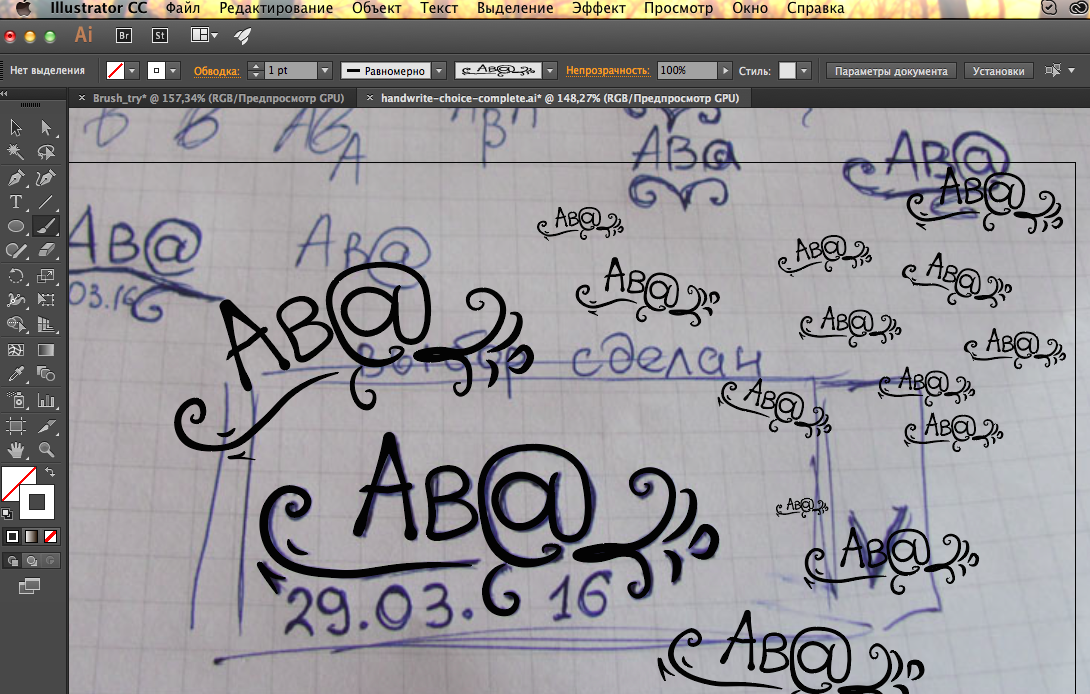 Illustrator CC Файл Редактирование Объект Текст Выделение Эффект Просмотр Окно Справка
Ai Br St
Нет выделения Обводка: 1 pt Равномерно АВ@ Непрозрачность: 100% Стиль: Параметры документа Установки
× Brush_try* @ 157,34% (RGB/Предпросмотр GPU) × handwrite-choice-complete.ai* @ 148,27% (RGB/Предпросмотр GPU)
В В АВ А В
АВ@ АВ@
АВ@
АВ@ АВ@
АВ@ АВ@
03.16
АВ@ АВ@
АВ@ АВ@
АВ@
выбор сделан
АВ@ АВ@
АВ@
АВ@
АВ@
АВ@
29.03. 16
АВ@